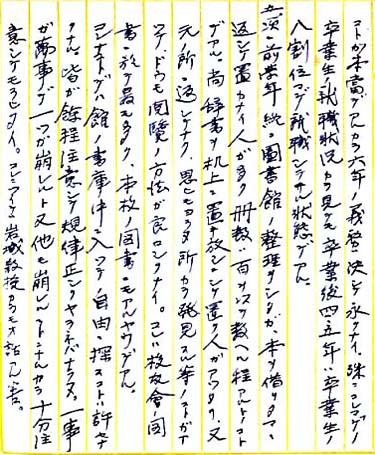 コトガ本當デアカラ六年ノ義務ハ決シテ永クナイ。殊ニコレマデノ
卒業生ノ就職状況カラ見テモ卒業後四、五年ハ卒業生ノ
八割位マデ就職シテヰル状態デアル。
五、次ニ前学年終ニ図書館ノ整理ヲシタガ、本ヲ借リタマヽ
返シテ置カナイ人ガ多ク冊数ハ百ヲ以ツテ数ヘル程アルトノコト
デアル。尚辞書ヲ机上ニ置キ放シニシテ置ク人ガアツタリ、又
元ノ所ニ返シテナク、思ヒモヨラヌ所カラ発見スル等ノコトガア
ツテ、ドウモ閲覧ノ方法ガ良ロシクナイ。己ニ校友会ノ図
書ニ於テ最モ多ク、本校ノ図書ニモアルヤウデアル。
コンナコトデハ館ノ書庫中ニ入ツテ自由ニ探スコトハ許サ
レナル。皆ガ餘程注意シテ規律正シクヤラネバナラヌ。一事
ガ萬事デ一ツガ崩レルト又他モ崩レルコトニナルカラ十分注
意シテモラヒタイ。コレニツイテ岩城教授カラモオ話シスル筈。